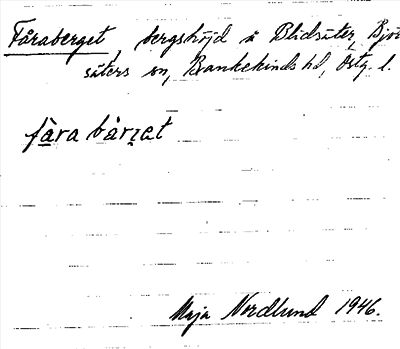 Fåraberget, bergshöjd å Blidsäter, Björ
säters sn, Bankekinds hd, Östg. l.
fåra bärʒet
Maja Nordlund 1946.